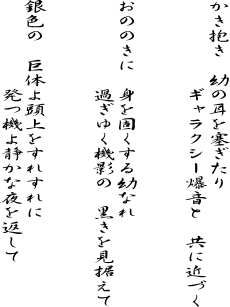 かき抱き 幼の耳を塞ぎたり
ギャラクシー爆音と 共に近づく
おののきに 身を固くする幼なれ
過ぎゆく機影の 黒きを見据えて
銀色の 巨体よ頭上をすれすれに
発つ機よ静かな夜を返して